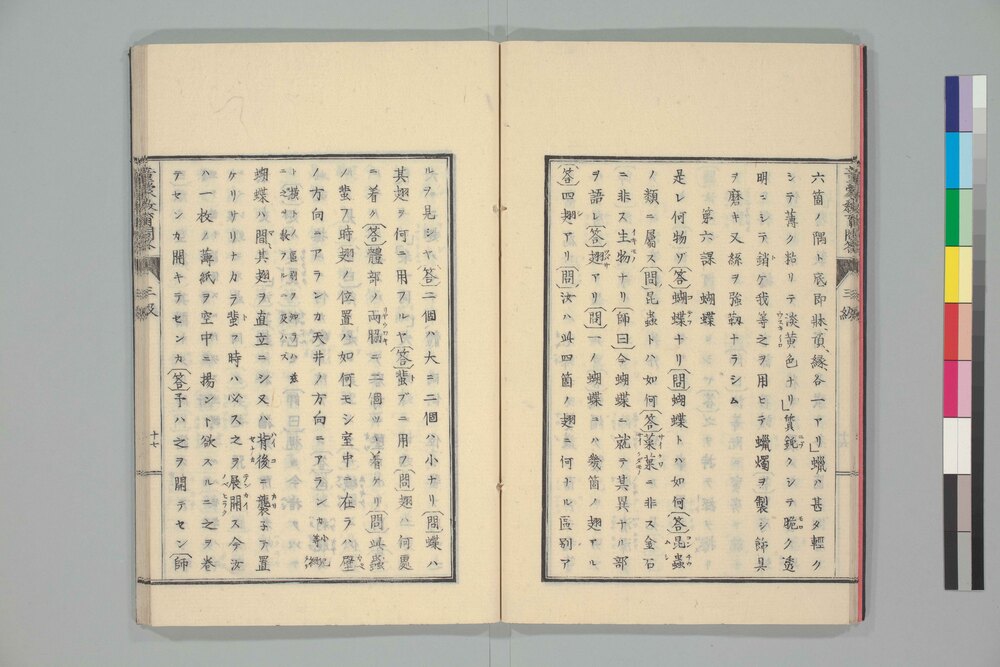 六箇ノ隅ト底即牀、頂、縁、各一アリ」蠟ハ甚タ輕ク
シテ薄ク粘リテ淡黄色ナリ」質鈍クシテ脆ク透
明ニシテ銷ケ我等之ヲ用ヒテ蠟燭ヲ製シ飾具
ヲ磨キ又絲ヲ強靱ナラシム
第六課　蝴蝶
是レ何物ゾ〔答〕蝴蝶ナリ〔問〕蝴蝶トハ如何〔答〕昆蟲
ノ類ニ屬ス〔問〕昆蟲トハ如何〔答〕菜菓ニ非ス金石
ニ非ス生物ナリ〔師曰〕今蝴蝶ニ就テ其異ナル部
ヲ語レ〔答〕翅アリ〔問〕一ノ蝴蝶ニハ幾箇ノ翅アル
〔答〕四翅アリ〔問〕汝ハ此四箇ノ翅ニ何ナル區別ア
ルヲ見シヤ〔答〕二個ハ大ニ二個ハ小ナリ〔問〕蝶ハ
其翅ヲ何ニ用フルヤ〔答〕蜚ブニ用フ〔問〕翅ハ何處
ニ着ク〔答〕體部ノ両脇ニ二個ツヽ着ケリ〔問〕此蟲
ノ蜚フ時翅ノ位置ハ如何モシ室中ニ在ラハ壁
ノ方向ニアランカ天井ノ方向ニアランカ
蝴蝶ハ間其翅ヲ直立ニシ又ハ背後ニ襲子テ置
ケリサリナカラ蜚フ時ハ必ス之ヲ展開ス今汝
ハ一枚ノ薄紙ヲ空中ニ揚ント欲スルニ之ヲ巻
テセンカ開キテセンカ〔答〕予ハ之ヲ開テセン〔師
三級
十七